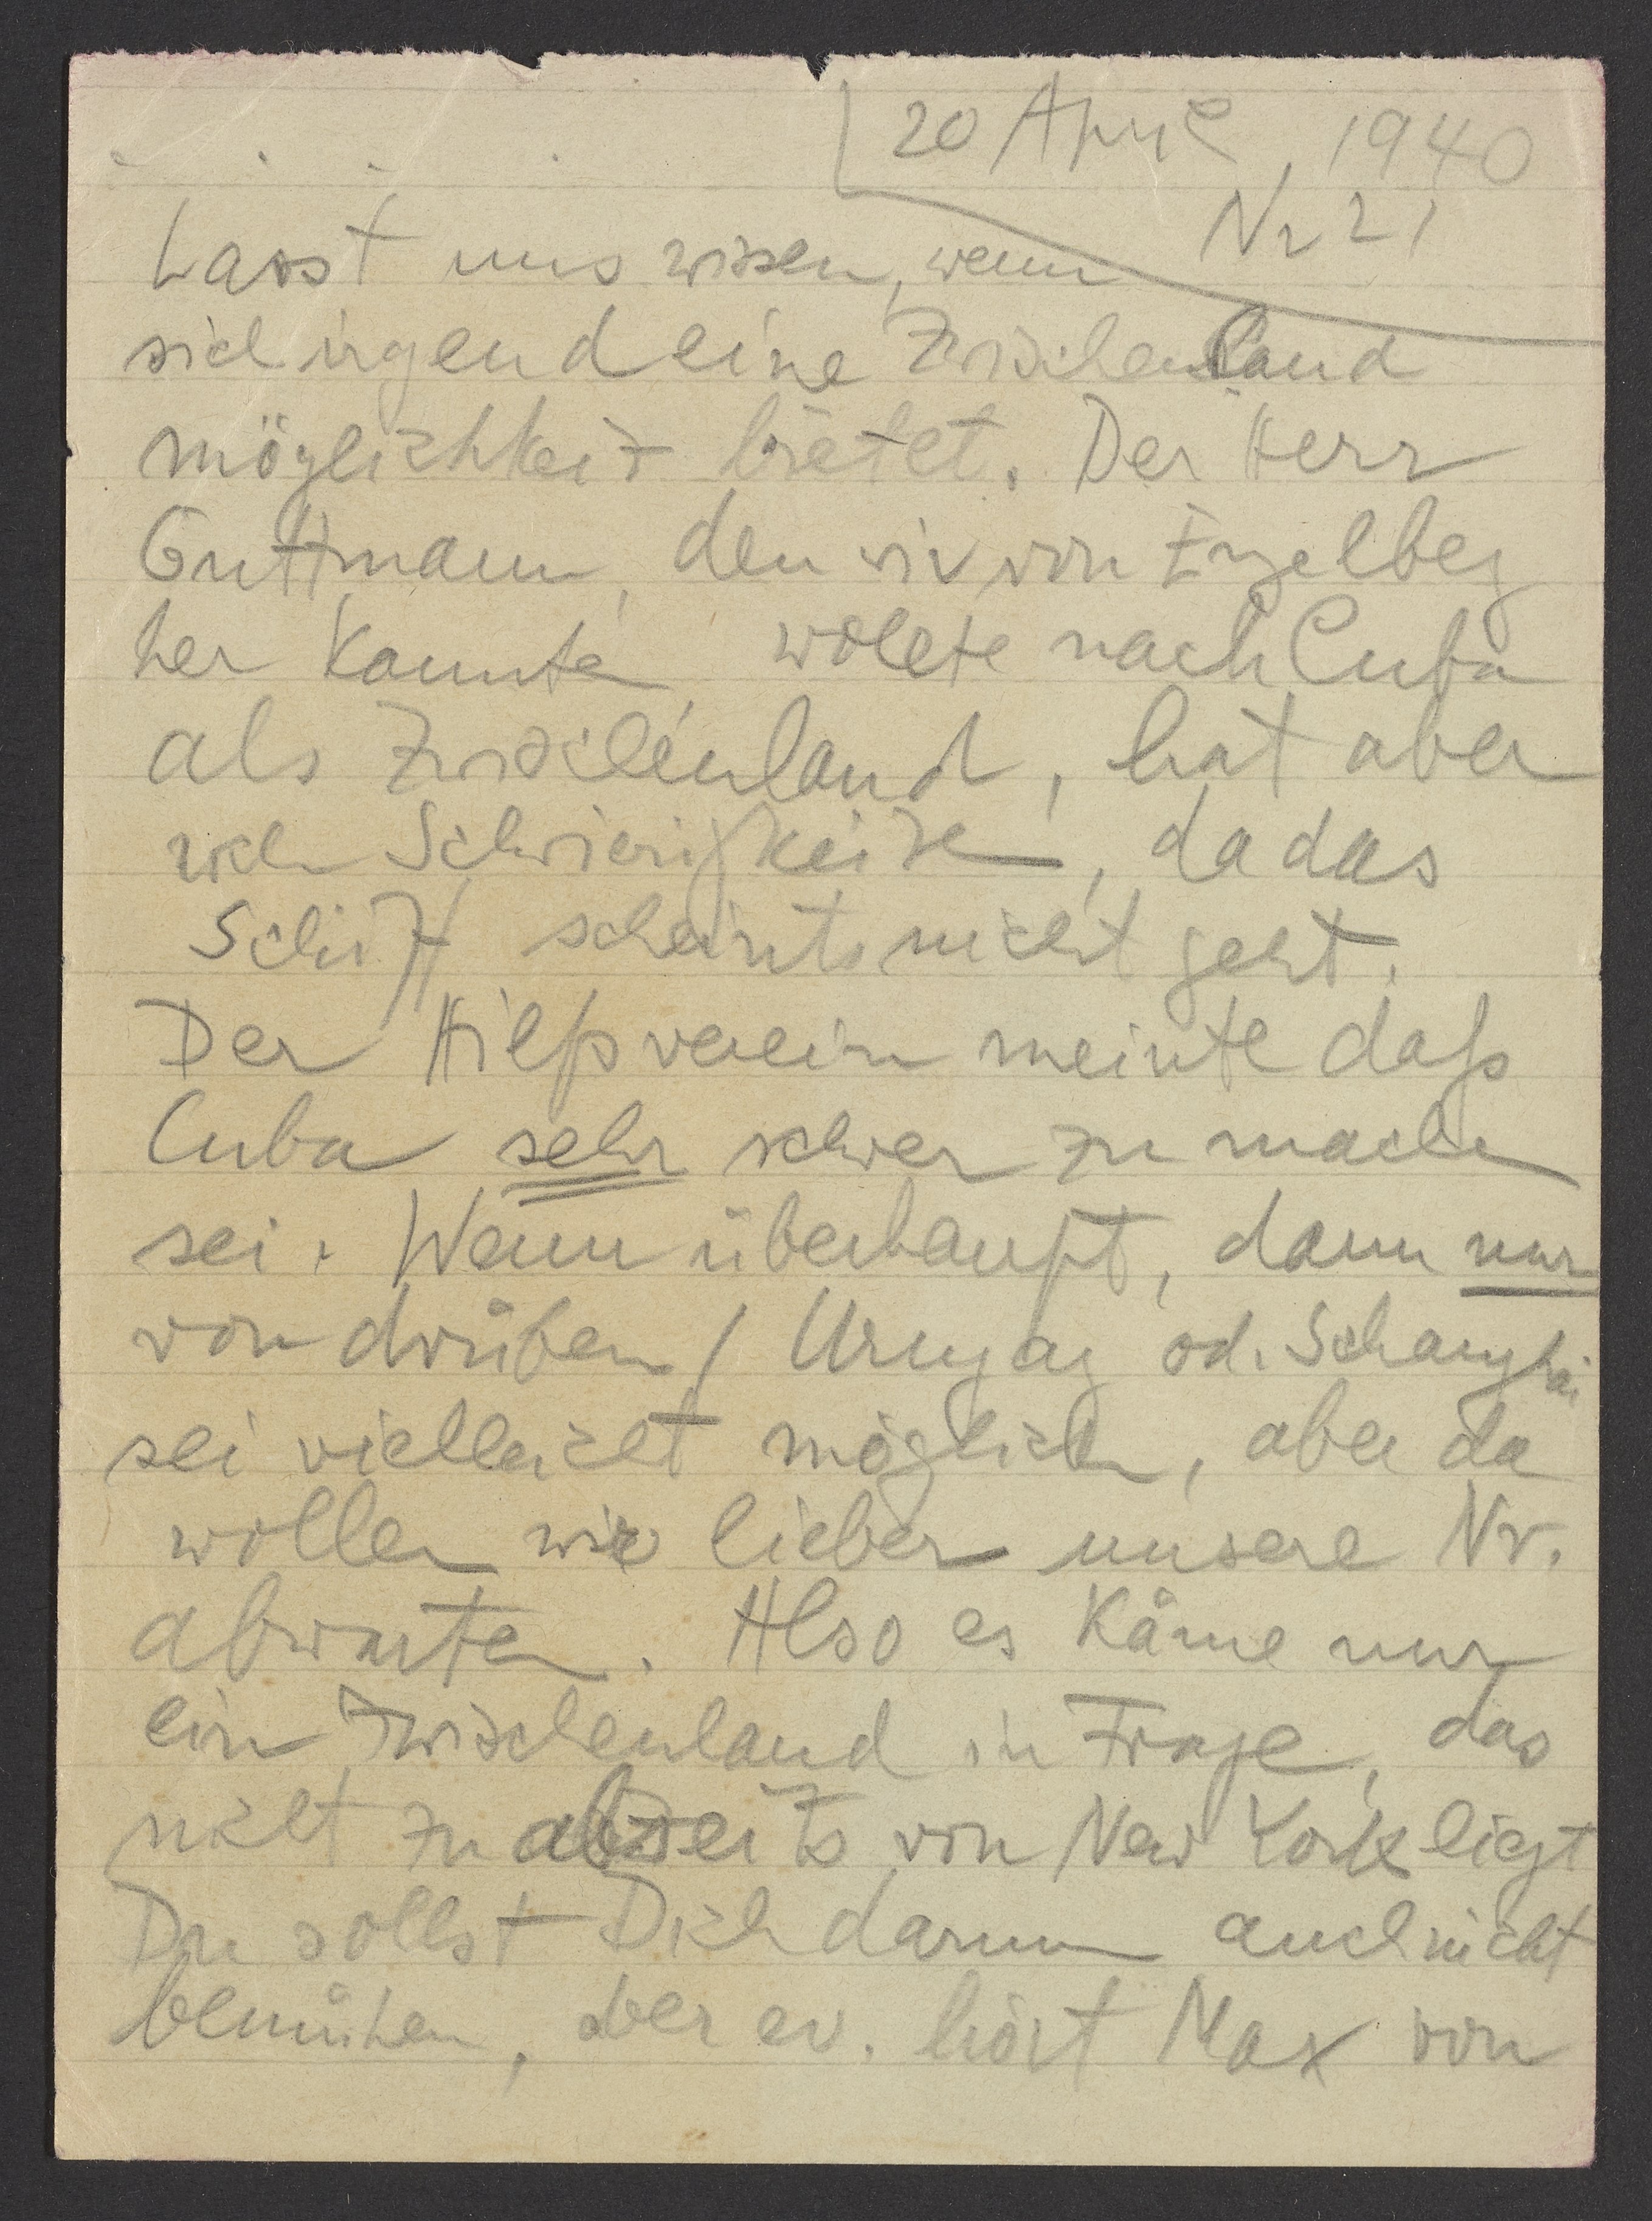 20 April 1940
Nr 21
Lasst uns wissen, wenn
sich irgend eine Zwischenland
möglichkeit bietet. Der Herr
Guttmann, den wir von Engelberg
her kannten, wollte nach Cuba
als Zwischenland, hat aber
Schwierigkeiten, da das
Schiff scheints nicht geht.
Der Hilfsverein meinte daß
Cuba sehr schwer zu machen
sei. Wenn überhaupt, dann nur
von drüben / Urugay od. Schanghai
sei vielleicht möglich, aber da
wollen wir lieber unsere Nr.
abwarten. Also es käme nur
ein Zwischenland in Frage, das
nicht zu abseits von New York liegt
Du sollst Dich darum auch nicht
bemühen, aber ev. hört Max von